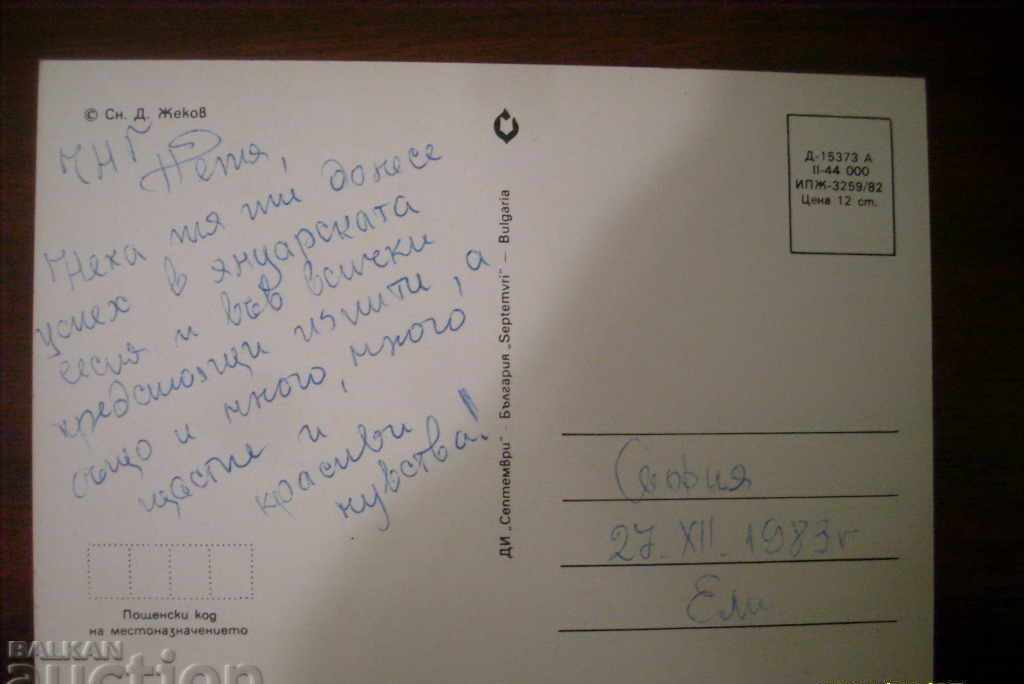 © Сн. Д. Жеков
ЧНГ
Петя,
Нека тя ти донесе
успех в януарската
сесия и във всички
предстоящи изпити, а
също и много, много
щастие и
красиви
чувства!
Пощенски код
на местоназначението
ДИ „Септември" - България „Septemvri" — Bulgaria
Д-15373 А
II-44 000
ИПЖ-3259/82
Цена 12 ст.
София
27. XII. 1983 г
Ели
BALKAN
auction